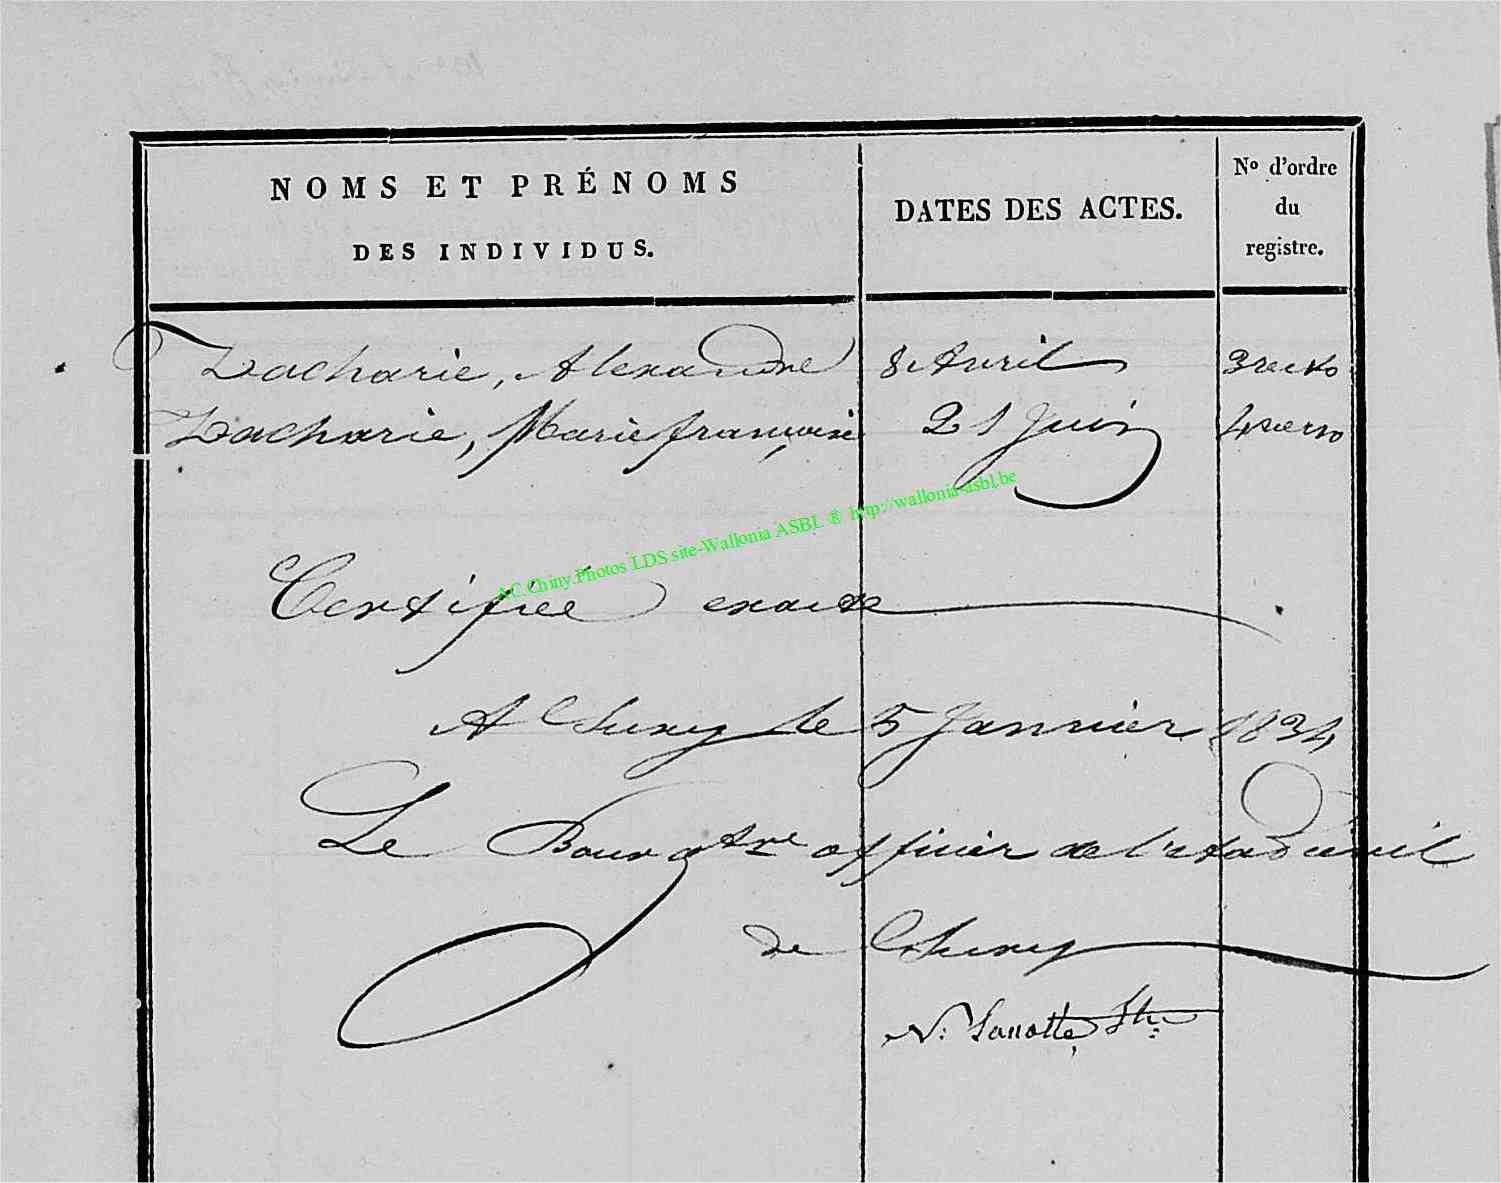 NOMS ET PRÉNOMS
DES INDIVIDUS.
DATES DES ACTES.
No d'ordre
du
registre.
Zacharie, Alexandre 8 Avril 3 recto
Zacharie, Marie françoise 21 Juin 4 verso
AC.Chiny.Photos LDS site-Wallonia ASBL ® http://wallonia-asbl.be
Certifiée exacte
A Suxy le 5 Janvier 1834
Le Bourgtre officier de l'etat civil
de Suxy
N: